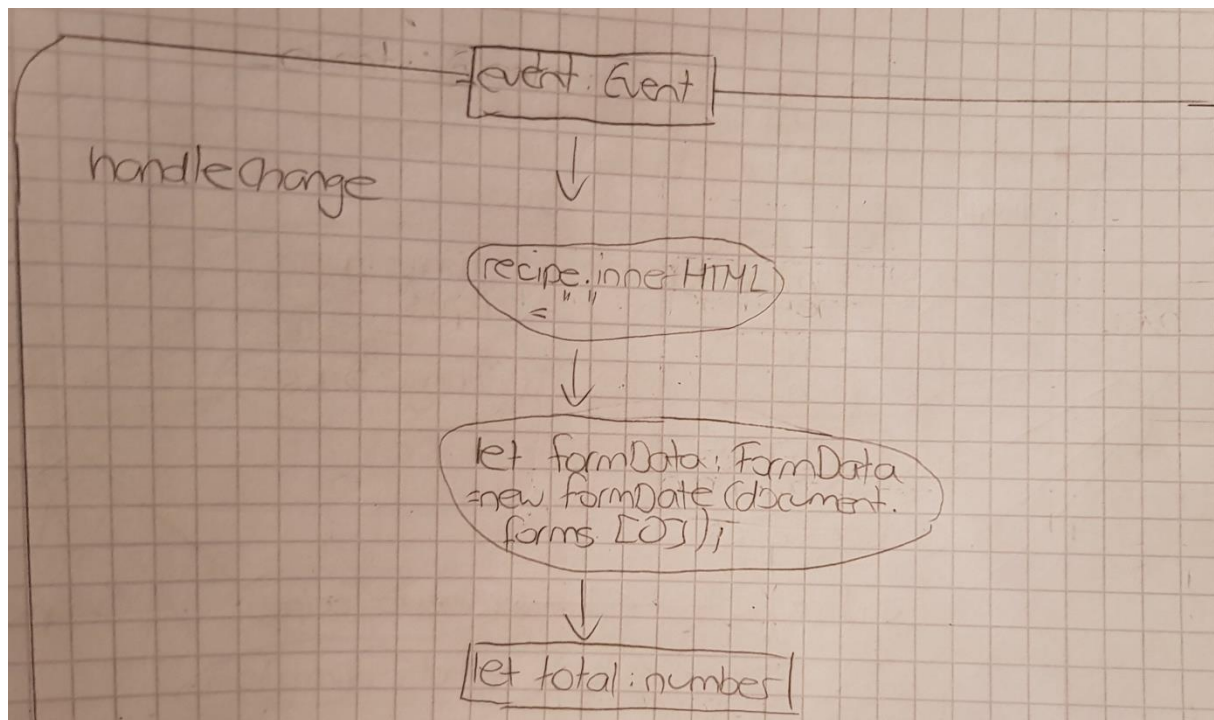 event: Event
handleChange
recipe.innerHTML
= " "
let formData: FormData
=new formDate (document.
forms [0]);
let total: number